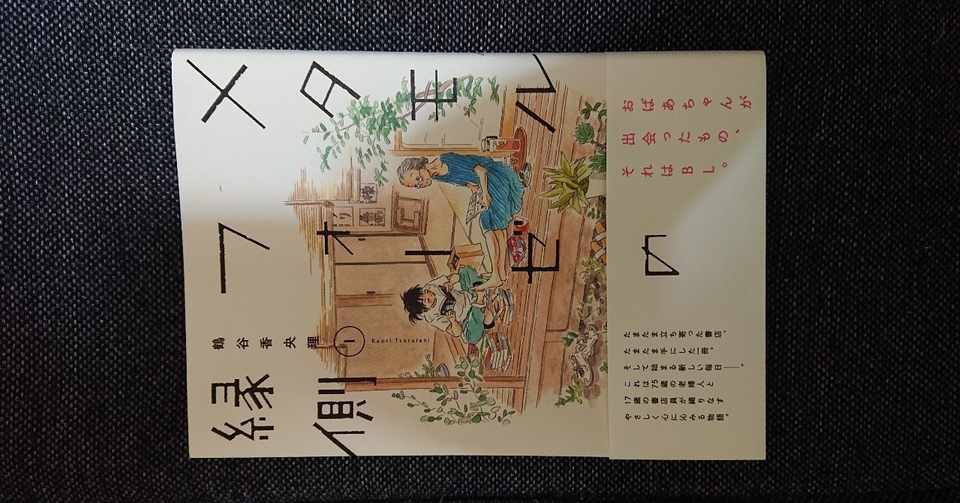 メタモル
フォーゼ
の
縁側
鶴谷香央理
1
Kaori Tsurutani
おばあちゃんが
出会ったもの、
それはBL。
たまたま立ち寄った書店。
たまたま手にした一冊。
そして始まる新しい毎日――。
これは75歳の老婦人と
17歳の書店員が織りなす
やさしく心に沁みる物語。